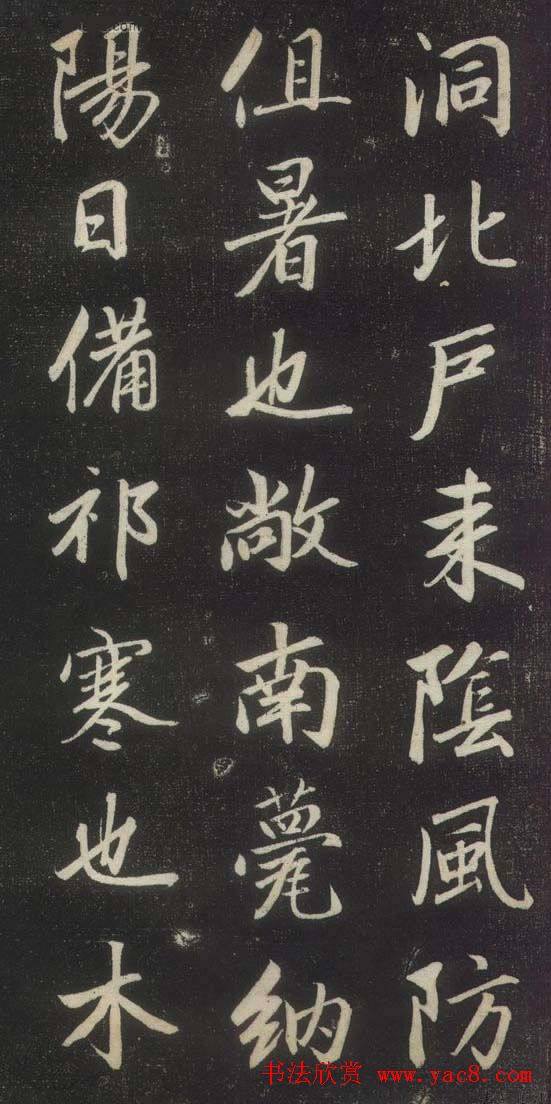 洞北戶来陰風防
徂暑也敞南甍納
陽日備祁寒也木
书法欣赏 www.yac8.com